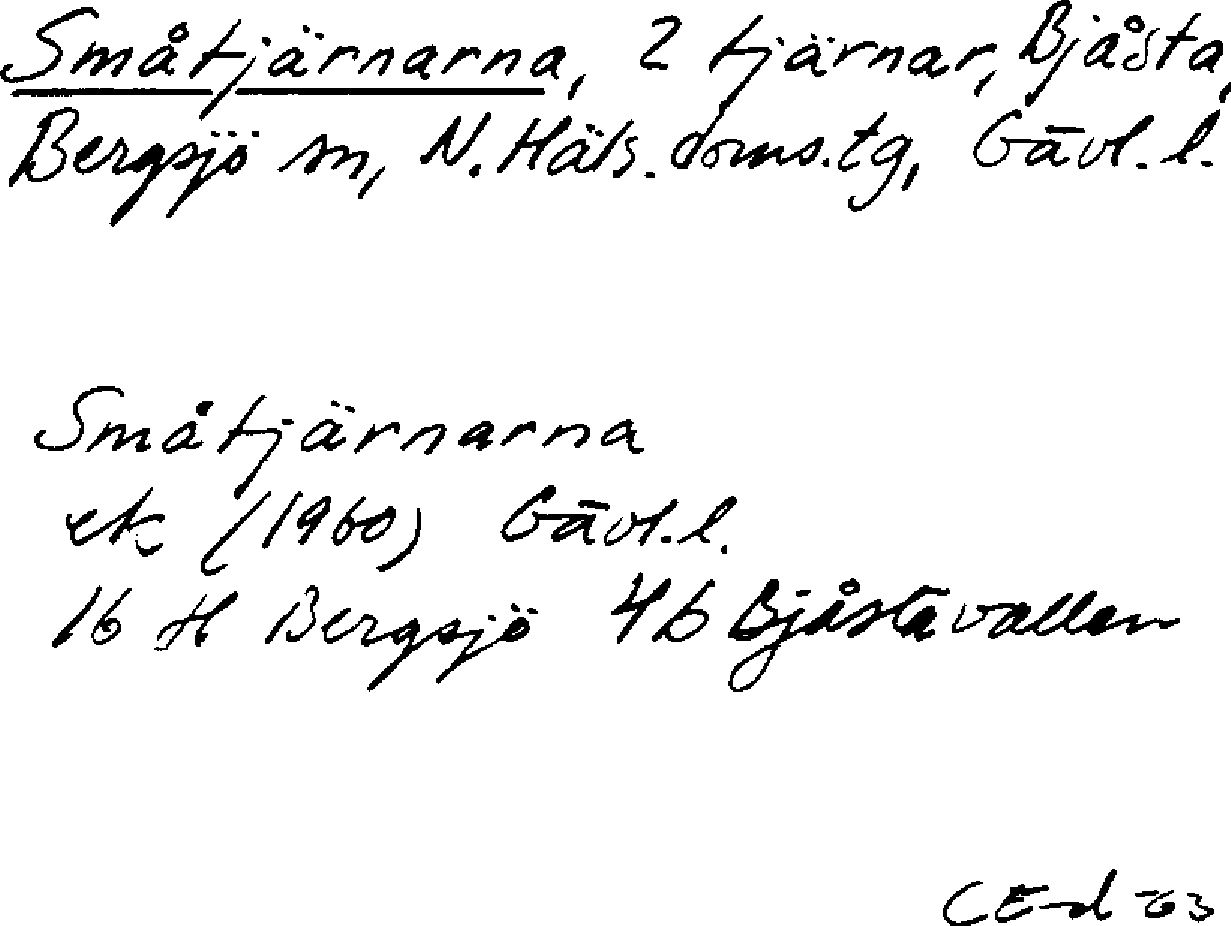 Småtjärnarna, 2 tjärnar, Bjåsta,
Bergsjö sn, N. Häls. doms.tg, Gävl. l.
Småtjärnarna
ek (1960) Gävl. l.
16 H Bergsjö 4b Bjåstavallen
CE-d -63